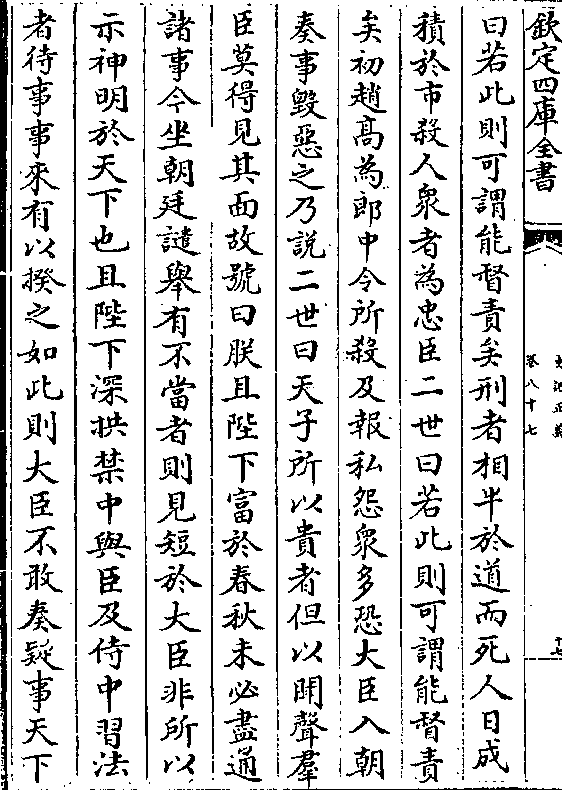 欽定四庫全書
史記正義
卷八十七
十七
曰若此則可謂能督責矣刑者相半於道而死人日成
積於市殺人衆者為忠臣二世曰若此則可謂能督責
矣初趙髙為郎中令所殺及報私怨衆多恐大臣入朝
奏事毀惡之乃説二世曰天子所以貴者但以聞聲羣
臣莫得見其面故號曰朕且陛下富於春秋未必盡通
諸事今坐朝廷譴舉有不當者則見短於大臣非所以
示神明於天下也且陛下深拱禁中與臣及侍中習法
者待事事來有以揆之如此則大臣不敢奏疑事天下